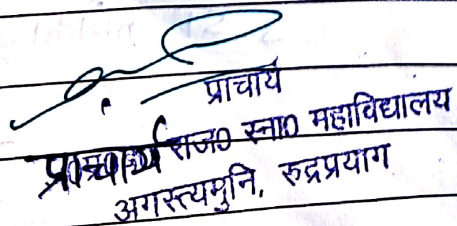 प्राचार्य
प्राचार्य राज० स्ना० महाविद्यालय
अगस्त्यमुनि, रुद्रप्रयाग